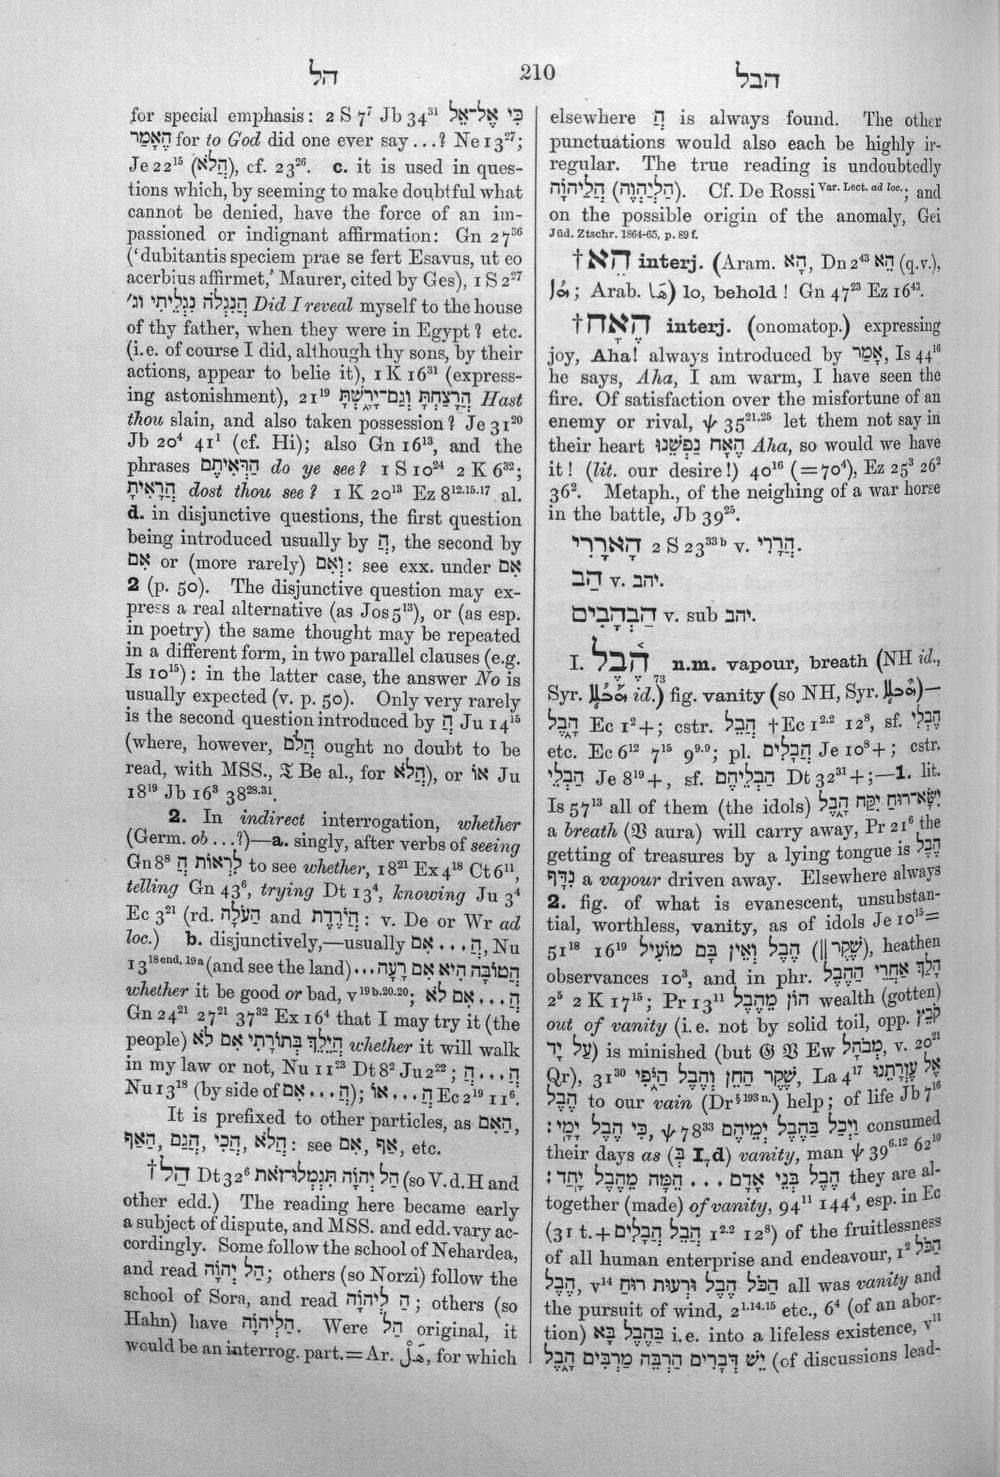 הל
210
הבל
for special emphasis: 2 S 7⁷ Jb 34³¹ כִּי אֶל־אֵל
הֶאָמַר for to God did one ever say...? Ne 13²⁷;
Je 22¹⁵ (הֲלֹא), cf. 23²⁶. c. it is used in ques-
tions which, by seeming to make doubtful what
cannot be denied, have the force of an im-
passioned or indignant affirmation: Gn 27³⁶
('dubitantis speciem prae se fert Esavus, ut eo
acerbius affirmet,' Maurer, cited by Ges), 1 S 2²⁷
הֲנִגְלֹה נִגְלֵיתִי וג׳ Did I reveal myself to the house
of thy father, when they were in Egypt? etc.
(i.e. of course I did, although thy sons, by their
actions, appear to belie it), 1 K 16³¹ (express-
ing astonishment), 21¹⁹ הֲרָצַחְתָּ וְגַם־יָרָשְׁתָּ Hast
thou slain, and also taken possession? Je 31²⁰
Jb 20⁴ 41¹ (cf. Hi); also Gn 16¹³, and the
phrases הַרְּאִיתֶם do ye see? 1 S 10²⁴ 2 K 6³²;
הֲרָאִיתָ dost thou see? 1 K 20¹³ Ez 8¹²·¹⁵·¹⁷ al.
d. in disjunctive questions, the first question
being introduced usually by הֲ, the second by
אִם or (more rarely) וְאִם: see exx. under אִם
2 (p. 50). The disjunctive question may ex-
press a real alternative (as Jos 5¹³), or (as esp.
in poetry) the same thought may be repeated
in a different form, in two parallel clauses (e.g.
Is 10¹⁵): in the latter case, the answer No is
usually expected (v. p. 50). Only very rarely
is the second question introduced by הֲ Ju 14¹⁵
(where, however, הֲלֹם ought no doubt to be
read, with MSS., 𝔗 Be al., for הֲלֹא), or אוֹ Ju
18¹⁹ Jb 16³ 38²⁸·³¹.
2. In indirect interrogation, whether
(Germ. ob ...?)—a. singly, after verbs of seeing
Gn 8⁸ לִרְאוֹת הֲ to see whether, 18²¹ Ex 4¹⁸ Ct 6¹¹,
telling Gn 43⁶, trying Dt 13⁴, knowing Ju 3⁴
Ec 3²¹ (rd. הַעֹלָה and הֲיֹרֶדֶת: v. De or Wr ad
loc.) b. disjunctively,—usually הֲ...אִם, Nu
13¹⁸ᵉⁿᵈ, ¹⁹ᵃ (and see the land)...הֲטוֹבָה הִיא אִם רָעָה
whether it be good or bad, v¹⁹ᵇ·²⁰·²⁰; הֲ...אִם לֹא
Gn 24²¹ 27²¹ 37³² Ex 16⁴ that I may try it (the
people) הֲיֵלֵךְ בְּתוֹרָתִי אִם לֹא whether it will walk
in my law or not, Nu 11²³ Dt 8² Ju 2²²; הֲ...הֲ
Nu 13¹⁸ (by side of הֲ...אִם); הֲ...אוֹ Ec 2¹⁹ 11⁶.
It is prefixed to other particles, as הַאִם,
הַאַף, הֲגַם, הֲכִי, הֲלֹא: see אִם, אַף, etc.
†הֲל Dt 32⁶ הֲל יְהוָֹה תִּגְמְלוּ־זֹאת (so V. d. H and
other edd.) The reading here became early
a subject of dispute, and MSS. and edd. vary ac-
cordingly. Some follow the school of Nehardea,
and read הַל יְהוָֹה; others (so Norzi) follow the
school of Sora, and read הֲ לַיהוָֹה; others (so
Hahn) have הַלַיהוָֹה. Were הַל original, it
would be an interrog. part.=Ar. هَلْ, for which
elsewhere הֲ is always found. The other
punctuations would also each be highly ir-
regular. The true reading is undoubtedly
הֲלַיהוָֹה (הֲלְיַהְוֶה). Cf. De Rossi Var. Lect. ad loc.; and
on the possible origin of the anomaly, Gei
Jüd. Ztschr. 1864-65, p. 89 f.
†הֵא interj. (Aram. הָא, Dn 2⁴³ הֵא (q.v.),
ܗܳܐ; Arab. هَا) lo, behold! Gn 47²³ Ez 16⁴³.
†הֶאָח interj. (onomatop.) expressing
joy, Aha! always introduced by אָמַר, Is 44¹⁶
he says, Aha, I am warm, I have seen the
fire. Of satisfaction over the misfortune of an
enemy or rival, ψ 35²¹·²⁵ let them not say in
their heart הֶאָח נַפְשֵׁנוּ Aha, so would we have
it! (lit. our desire!) 40¹⁶ (=70⁴), Ez 25³ 26²
36². Metaph., of the neighing of a war horse
in the battle, Jb 39²⁵.
הָאֲרָרִי 2 S 23³³ᵇ v. הֲרָרִי.
הַב v. יהב.
הַבְהָבִים v. sub יהב.
I. הֶבֶל₇₃ n.m. vapour, breath (NH id.,
Syr. ܗܶܒܠܳܐ id.) fig. vanity (so NH, Syr. ܗܶܒܠܳܐ)—
הָבֶל Ec 1²+; cstr. הֲבֵל †Ec 1²·² 12⁸, sf. הֶבְלִי
etc. Ec 6¹² 7¹⁵ 9⁹·⁹; pl. הֲבָלִים Je 10⁸+; cstr.
הַבְלֵי Je 8¹⁹+, sf. הַבְלֵיהֶם Dt 32³¹+;—1. lit.
Is 57¹³ יִשָּׂא־רוּחַ יִקַּח הָבֶל all of them (the idols)
a breath (𝔙 aura) will carry away, Pr 21⁶ the
getting of treasures by a lying tongue is הֶבֶל
נִדָּף a vapour driven away. Elsewhere always
2. fig. of what is evanescent, unsubstan-
tial, worthless, vanity, as of idols Je 10¹⁵=
51¹⁸ 16¹⁹ הֶבֶל וְאֵין בָּם מוֹעִיל (‖שֶׁקֶר), heathen
observances 10³, and in phr. הָלַךְ אַחֲרֵי הַהֶבֶל
2⁵ 2 K 17¹⁵; Pr 13¹¹ הוֹן מֵהֶבֶל wealth (gotten)
out of vanity (i.e. not by solid toil, opp. קֹבֵץ
עַל יָד) is minished (but 𝔊 𝔙 Ew מְבֹהָל, v. 20²¹
Qr), 31³⁰ שֶׁקֶר הַחֵן וְהֶבֶל הַיֹּפִי, La 4¹⁷ אֶל עֶזְרָתֵנוּ
הָבֶל to our vain (Dr § 193 n.) help; of life Jb 7¹⁶
כִּי הֶבֶל יָמָי:, ψ 78³³ וַיְכַל בַּהֶבֶל יְמֵיהֶם consumed
their days as (בְּ I, 7 d) vanity, man ψ 39⁶·¹² 62¹⁰
הֶבֶל בְּנֵי אָדָם ... הֵמָּה מֵהֶבֶל יָחַד: they are al-
together (made) of vanity, 94¹¹ 144⁴, esp. in Ec
(31 t.+הֲבֵל הֲבָלִים 1²·² 12⁸) of the fruitlessness
of all human enterprise and endeavour, 1² הַכֹּל
הָבֶל, v¹⁴ הַכֹּל הֶבֶל וּרְעוּת רוּחַ all was vanity and
the pursuit of wind, 2¹·¹⁴·¹⁵ etc., 6⁴ (of an abor-
tion) בַּהֶבֶל בָּא i.e. into a lifeless existence, v¹¹
יֵשׁ דְּבָרִים הַרְבֵּה מַרְבִּים הָבֶל (of discussions lead-